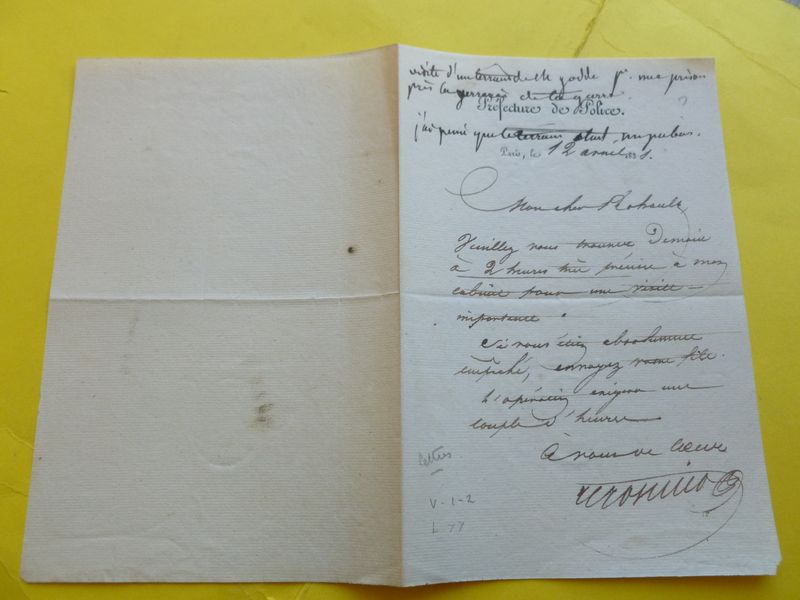 visite d'un terrain de M godde pr une prison
près la de la gare
Préfecture de Police.
j'ai pensé que le terrain était
Paris, le 12 avril 183
Mon cher Rohault
Veuillez vous trouver Demain
à 2 heures très précise à mon
cabinet pour une visite
importante.
Si vous étiez absolument
empêché, envoyez votre
L'opération exigera une
couple d'heures
à vous de Coeur
lettres
V-1-2
L 77